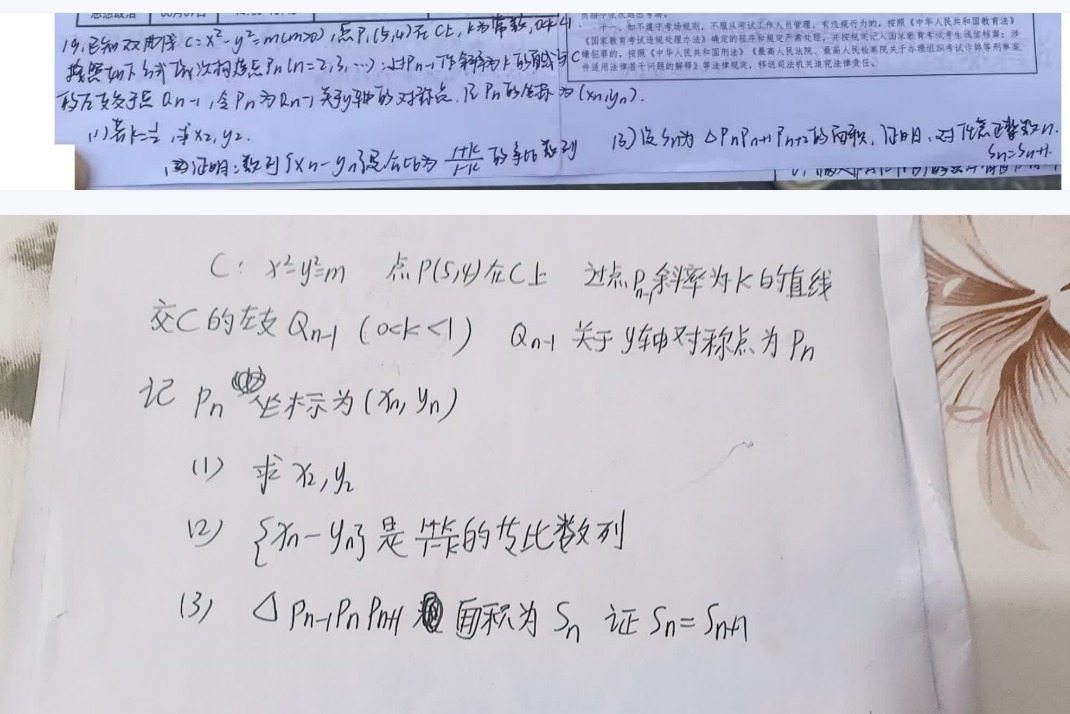 思想政治
十一、如不遵守考场规则,不服从考试工作人员管理,有违规行为的,按照《中华人民共和国教育法》
《国家教育考试违规处理办法》确定的程序和规定严肃处理,并按规定记入国家教育考试考生诚信档案;涉
嫌犯罪的,按照《中华人民共和国刑法》《最高人民法院、最高人民检察院关于办理组织考试作弊等刑事案
件适用法律若干问题的解释》等法律规定,移送司法机关追究法律责任。
19.已知双曲线 C:x²-y²=m(m>0),点P₁(5,4)在C上,k为常数,0<k<1
按照如下方式依次构造点Pn(n=2,3,…):过Pn-1作斜率为k的直线与C
的左支交于点Qn-1,令Pn为Qn-1关于y轴的对称点,记Pn的坐标为(xn,yn).
(1)若k=½,求x2,y2.
(2)证明:数列{xn-yn}是公比为 1+k/1-k 的等比数列
(3)设Sn为△PnPn+1Pn+2的面积,证明:对任意正整数n.
Sn=Sn+1.
C: x²-y²=m 点P(5,4)在C上 过点Pn-1斜率为k的直线
交C的左支Qn-1 (0<k<1) Qn-1 关于y轴对称点为Pn
记 Pn 坐标为(xn,yn)
(1) 求 x2,y2
(2) {xn-yn}是1+k/1-k的等比数列
(3) △Pn-1PnPn+1 面积为 Sn 证 Sn=Sn+1